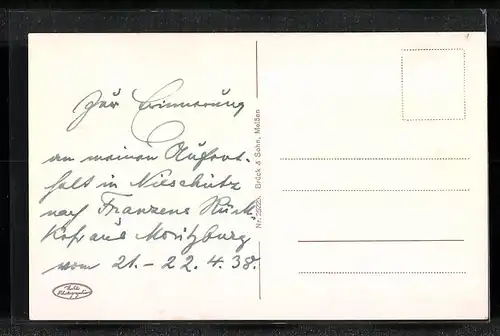 Zur Erinnerung
an meinen Aufent-
halt in Nieschütz
nach Franzens Rück-
aus Moritzburg
vom 21. - 22. 4. 38.
Nr. 2522b. Brück & Sohn, Meißen